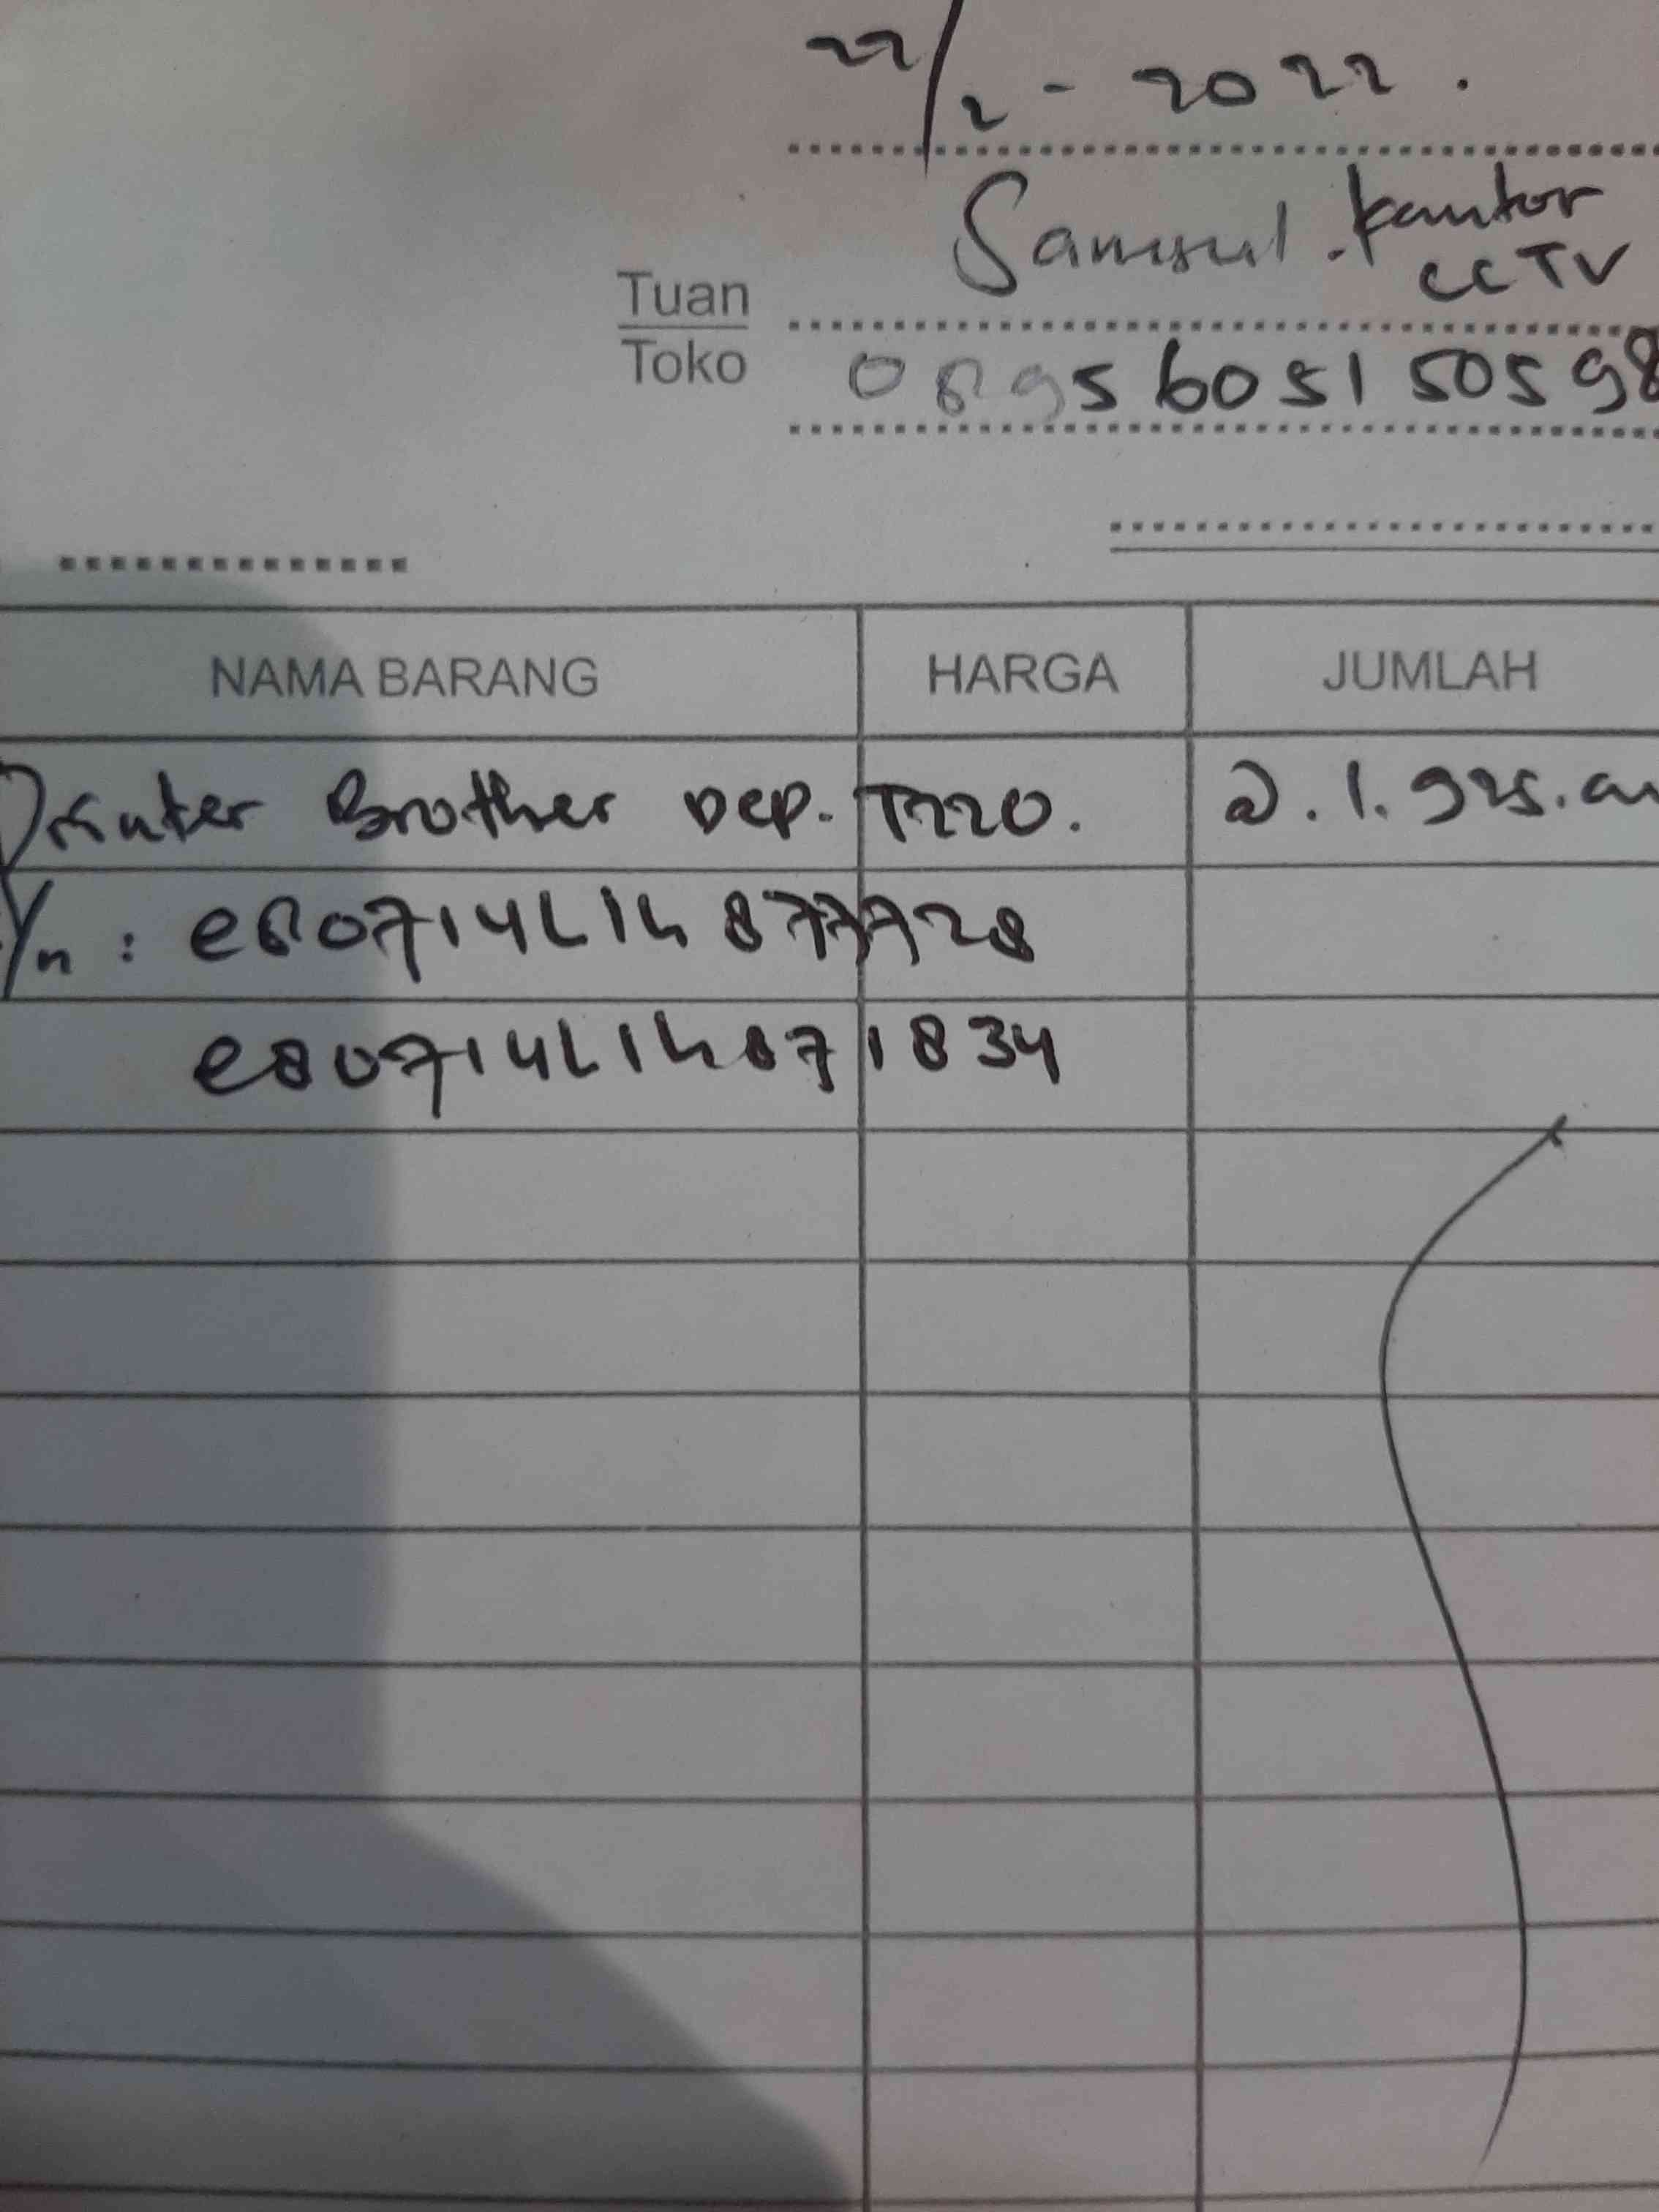 22/2 - 2022.
Samsul. kantor
CCTV
Tuan
Toko 0895605150598
NAMA BARANG HARGA JUMLAH
Printer Brother DCP. T220. @. 1. 925.
S/n : e80714L1h877728
e80714L1h871834